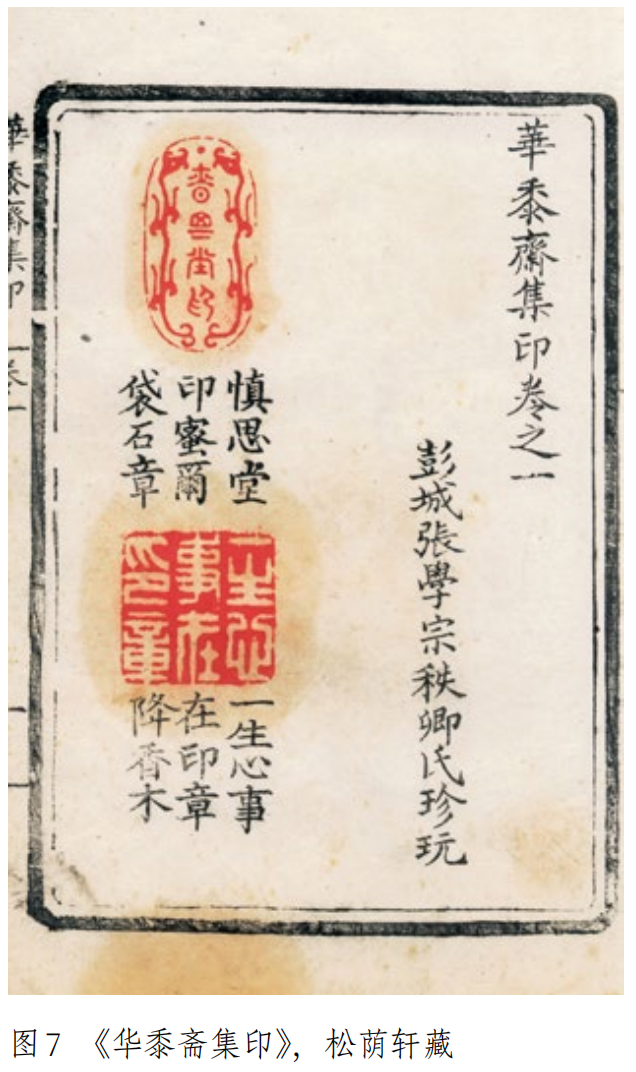 華黍齋集印卷之一
彭城張學宗秩卿氏珍玩
眘思堂印
慎思堂
印蜜爾
袋石章
一生心
事在
印章
一生心事
在印章
降香木
華黍齋集印 卷一
一
图7 《华黍斋集印》，松荫轩藏